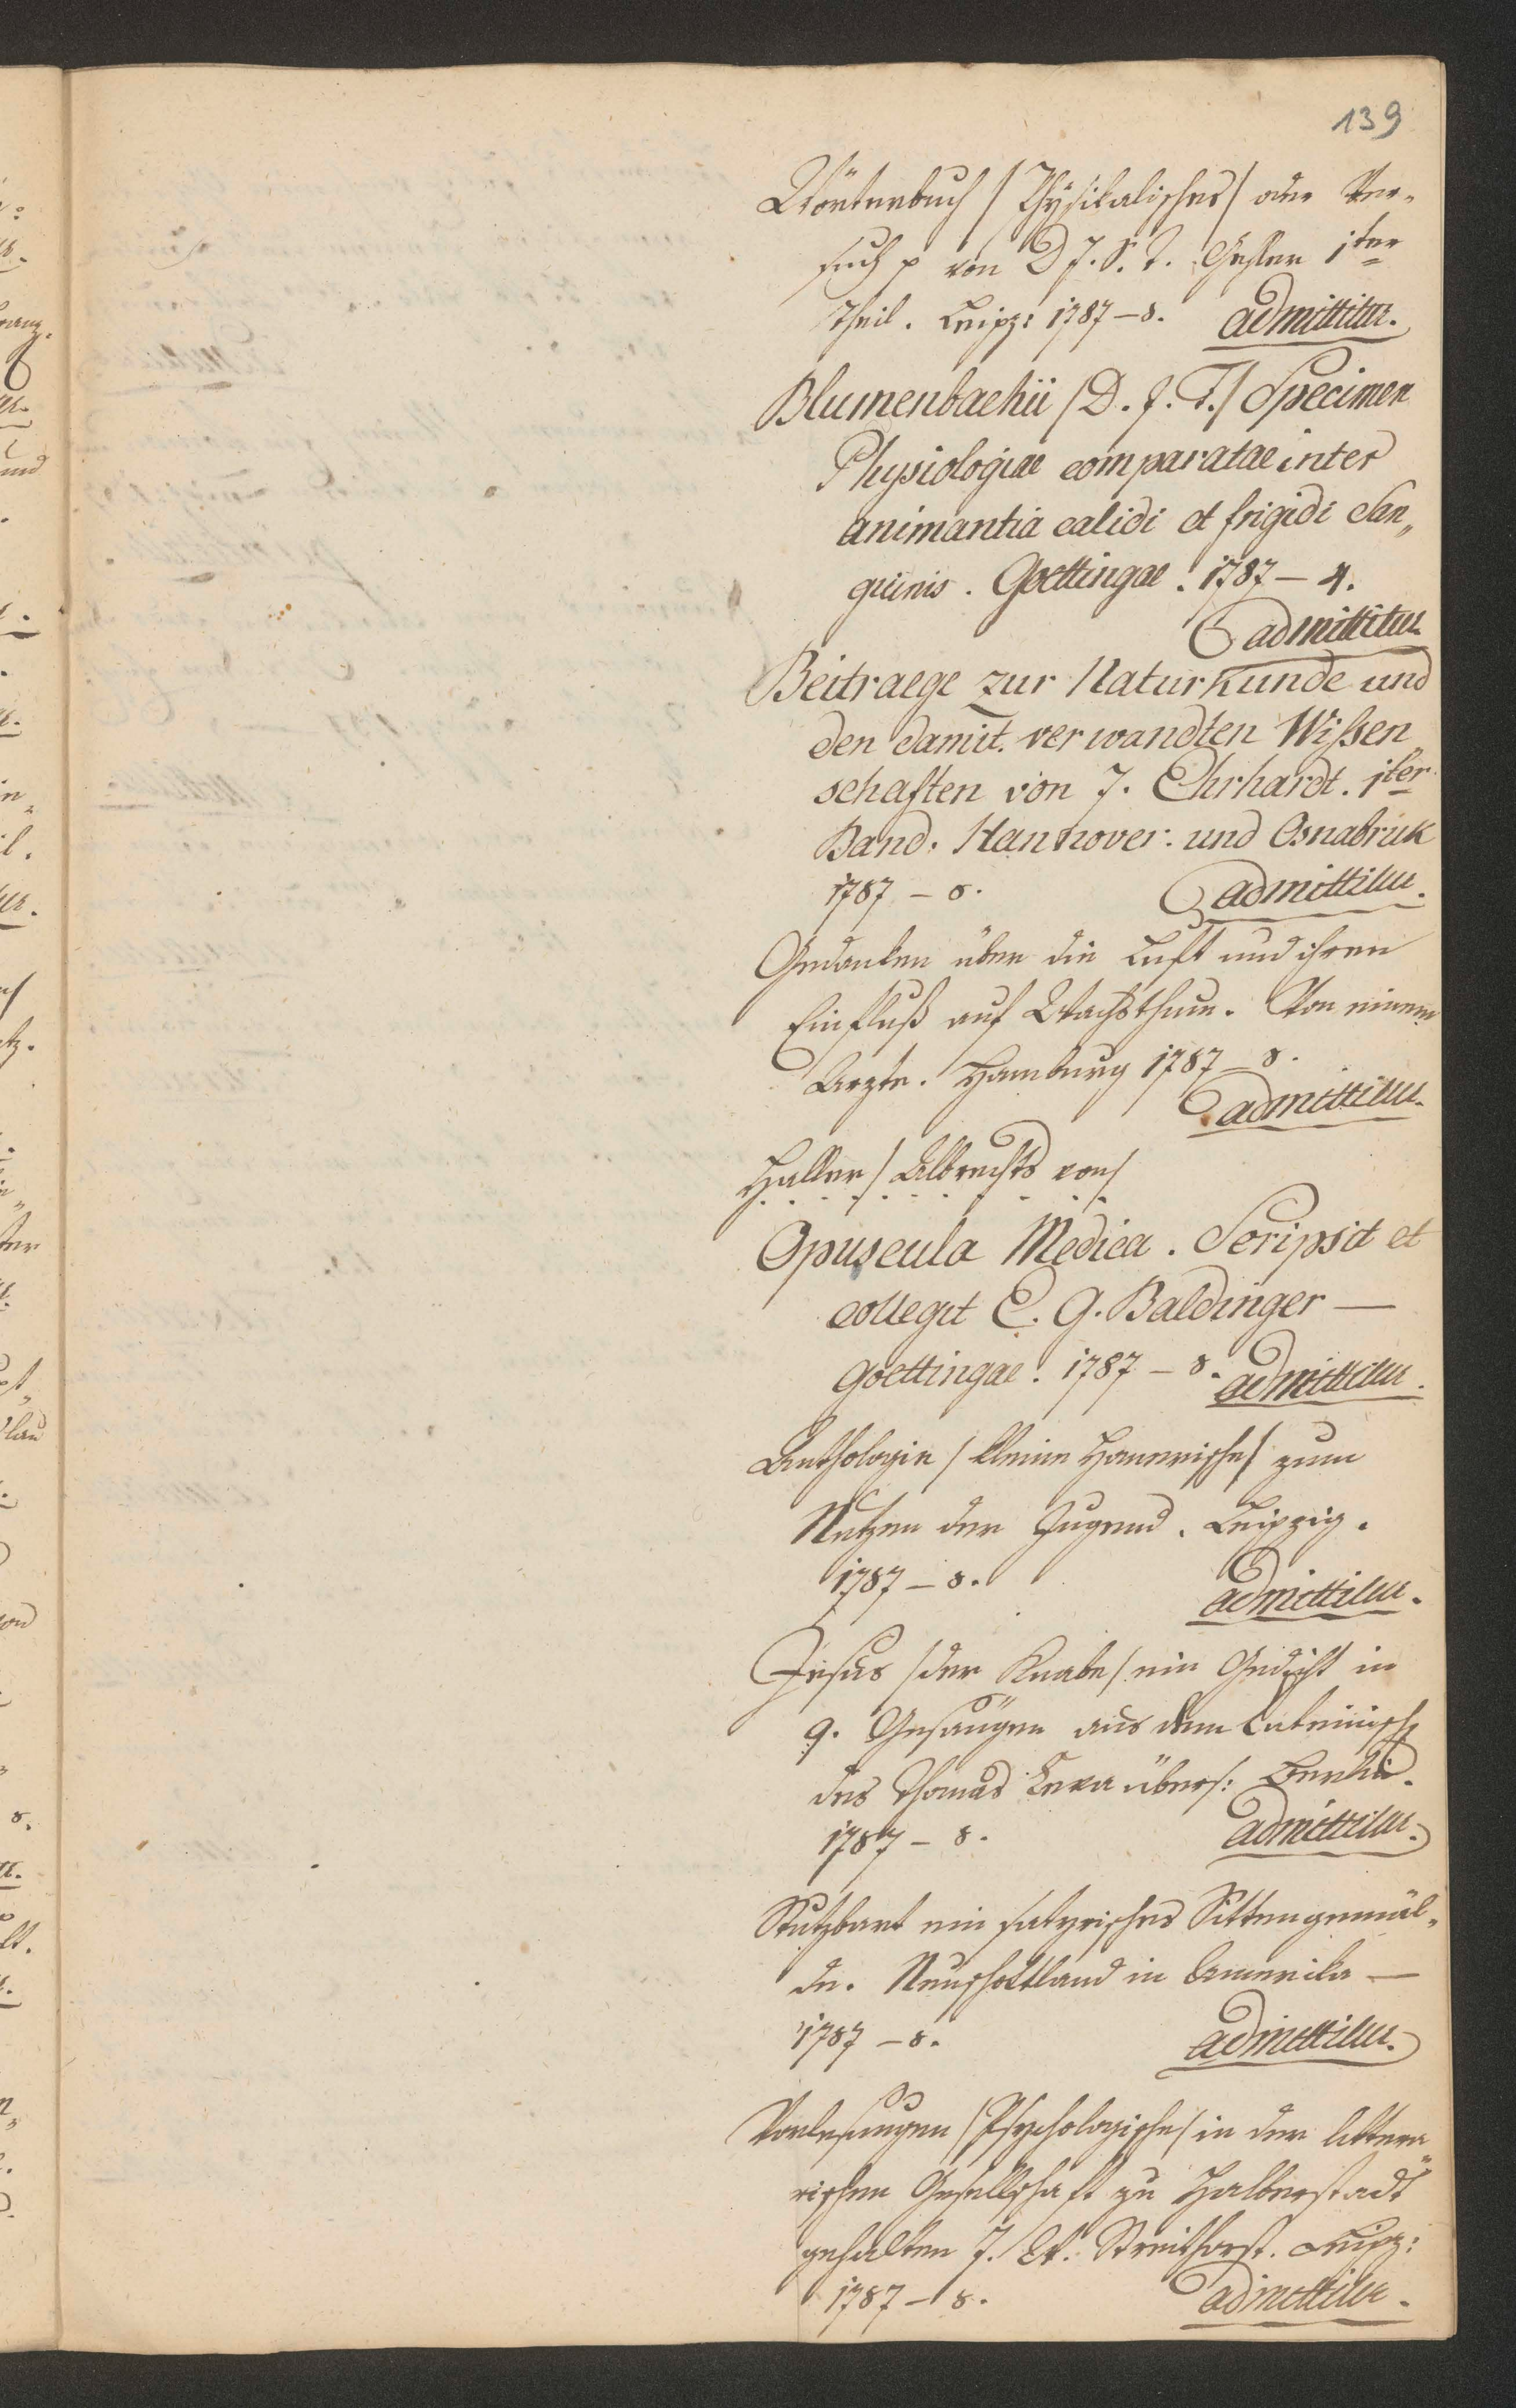 139
Wörterbuch / Physikalisches / oder Ver-
such p von D J. S. T. Gehler 1ter
Theil. Leipz: 1787 – 8. admittitur.
Blumenbachii / D. J. F. / Specimen
Physiologiae comparatae inter
animantia calidi et frigidi San„
guinis. Goettingae. 1787 – 4.
admittitur
Beitraege zur Naturkunde und
den damit verwandten Wißen
schaften von J. Ehrhardt. 1ter
Band. Hannover. und Osnabruk
1787 – 8. admittitur.
Gedanken über die Luft und ihren
Einfluß auf Wachsthum. Von einem
Arzte. Hamburg 1787 – 8.
admittitur.
Haller / Albrechts von /
Opuscula Medica. Scripsit et
collegit E. G. Baldinger —
Goettingae. 1787 – 8. admittitur.
Anthologie / kleine Homerische / zum
Nutzen der Jugend. Leipzig.
1787 – 8. admittitur.
Jesus / der Knabe / ein Gedicht in
9. Gesängen aus dem Lateinisch
des Thomas Ceva übers: Berlin.
1787 – 8. admittitur.
Stutzbart ein satyrisches Sittengemäl„
de. Neuschottland in Amerika —
1787 – 8. admittitur.
Vorlesungen / Psychologische / in der littera„
rischen Gesellschaft zu Halberstadt
gehalten J. W. Streithorst. Leipz:
1787 – 8. admittitur.